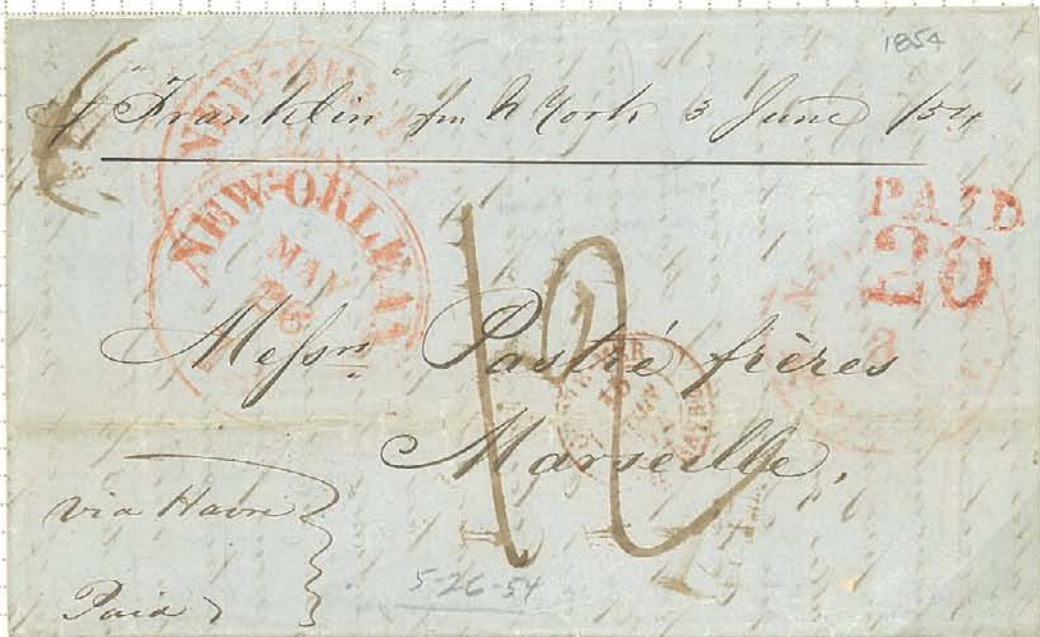 1854
"Franklin" fm N York 3 June /54
NEW-OR
NEW-ORLEA
MAY
26
PAID
20
Messrs Pastré frères
Marseille,
12
via Havre
Paid
5-26-54